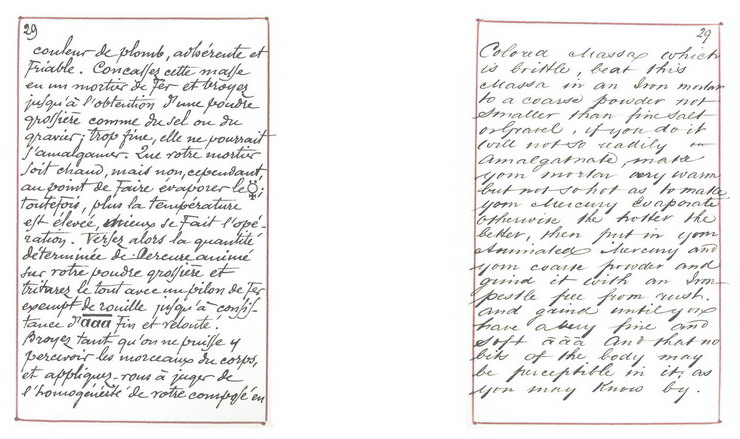 29
couleur de plomb, adhérente et
friable. Concassez cette masse
en un mortier de fer et broyez
jusqu'à l'obtention d'une poudre
grossière comme du sel ou du
gravier; trop fine, elle ne pourrait
s'amalgamer. Que votre mortier
soit chaud, mais non, cependant,
au point de faire evaporer le ☿;
toutefois, plus la température
est élevée, mieux se fait l'opé-
ration. Versez alors la quantité
déterminée de Mercure animé
sur votre poudre grossière et
triturez le tout avec un pilon de fer
exempt de rouille jusqu'à consis-
tance d'aaa fin et velouté.
Broyez tant qu'on ne puisse y
percevoir les morceaux du corps,
et appliquez-vous à juger de
l'homogénéité de votre composé en
29
Colored Massa which
is brittle, beat this
Massa in an Iron mortar
to a coarse powder not
smaller than fine salt
or gravel, if you do it
will not so readily
amalgamate, make
your mortar very warm
but not so hot as to make
your Mercury Evaporate
otherwise the hotter the
better, then put in your
Animated Mercury and
your coarse powder and
grind it with an Iron
pestle free from rust.
and grind until you
have a very fine and
soft aaa And that no
bits of the body may
be perceptible in it, as
you may Know by.